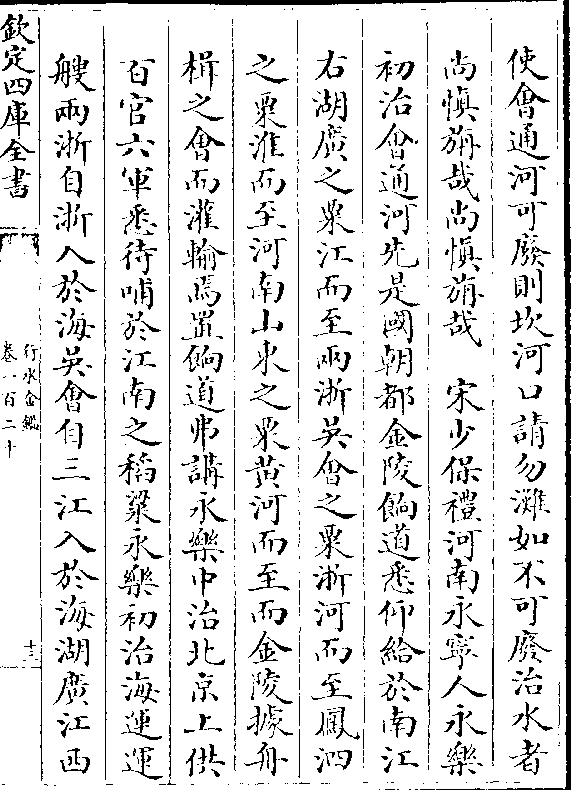 使會通河可廢則坎河口請勿灘如不可廢治水者
尚慎旃哉尚慎旃哉　宋少保禮河南永寧人永樂
初治會通河先是國朝都金陵餉道悉仰給於南江
右湖廣之粟江而至兩浙吳會之粟浙河而至鳳泗
之粟淮而至河南山東之粟黃河而至而金陵據舟
楫之會而灌輸焉置餉道弗講永樂中治北京上供
百官六軍悉待哺於江南之稻粱永樂初治海運運
艘兩浙自浙入於海吳會自三江入於海湖廣江西
欽定四庫全書
行水金鑑
卷一百二十
十三